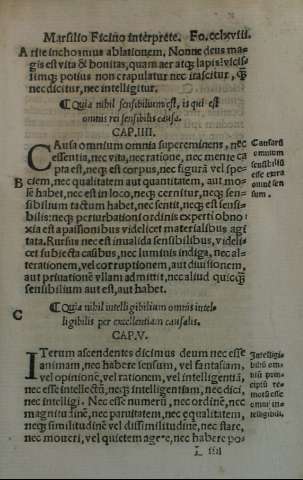 Marsilio Ficino interprete. Fo. cclxviii.
A rite inchoamus ablationem. Nonne deus ma-
gis est vita & bonitas, quam aer atq; lapis? vicis
simq; potius non crapulatur nec irascitur, q̃
nec dicitur, nec intelligitur.
¶ Quia nihil sensibilium est, is qui est
omnis rei sensibilis causa.
CAP. IIII.
CAusa omnium omnia supereminens, nec
essentia, nec vita, nec ratione, nec mente ca
pta est, neq; est corpus, nec figurā vel spe-
B ciem, nec qualitatem aut quantitatem, aut mo-
lē habet, nec est in loco, neq; cernitur, neq; sen-
sibilium tactum habet, nec sentit, neq; est sensi-
bilis: neq; perturbationi ordinis experti obno
xia est a passionibus videlicet materialibus agi
tata. Rursus nec est inualida sensibilibus, videli
cet subiecta casibus, nec luminis indiga, nec al-
terationem, vel corruptionem, aut diuisionem,
aut priuationem vllam admittit, nec aliud quicq̃
sensibilium aut est, aut habet.
Causarū
omnium
sensibiliū
esse extra
omnē sen
sum.
C ¶ Quia nihil intelligibilium omnis intel-
ligibilis per excellentiam causalis.
CAP. V.
ITerum ascendentes dicimus deum nec esse
animam, nec habere sensum, vel fantasiam,
vel opinionē, vel rationem, vel intelligentiā,
nec esse intellectū, neq; intelligentiam, nec dici,
nec intelligi. Nec esse numerū, nec ordinē, nec
magnitudinē, nec paruitatem, nec equalitatem,
neq; similitudinē vel dissimilitudinē, nec stare,
nec moueri, vel quietem agere, nec habere po-
Intelligi-
biliū om-
niū prin-
cipiū re-
motū esse
omni in-
telligibili.
L iiii